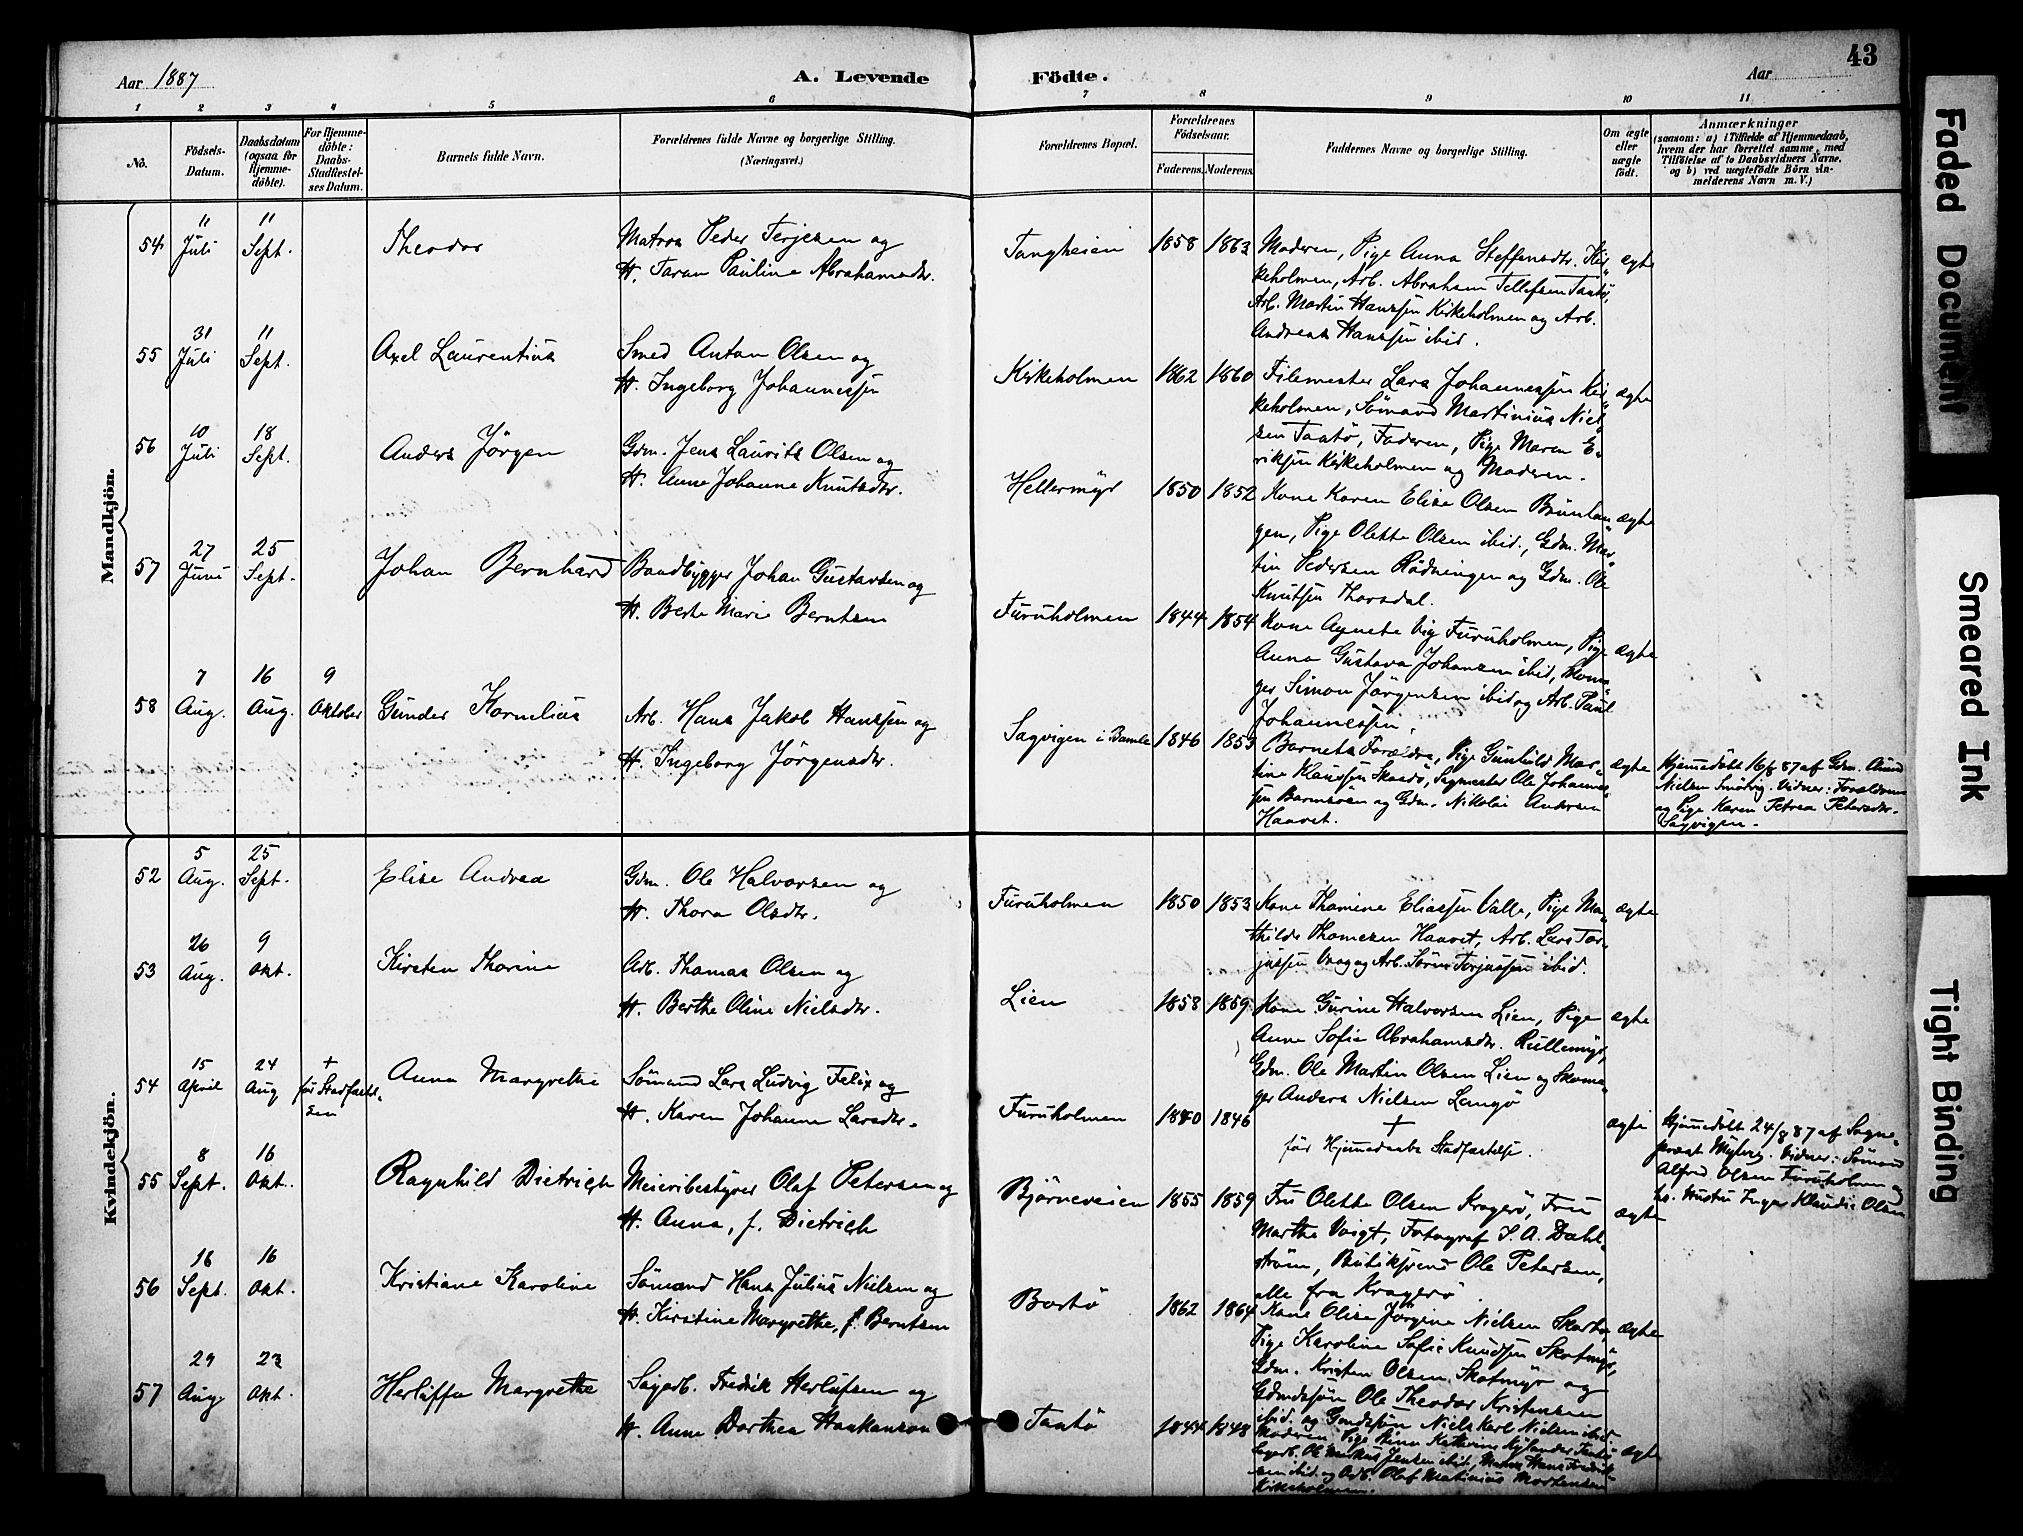 Aar 1887
A. Levende
Födte.
Aar
43
1 2 3 4 5 6 7 8 9 10 11
No.
Födsels-Datum.
Daabsdatum (ogsaa for Hjemme-döbte).
For Hjemme-döbte: Daabs-Stadfæstel-ses Datum.
Barnets fulde Navn.
Forældrenes fulde Navne og borgerlige Stilling.
(Næringsvei.)
Forældrenes Bopæl.
Forældrenes Födselsaar.
Faderens. Moderens.
Faddernes Navne og borgerlige Stilling.
Om ægte eller uægte født.
Anmærkninger
(saasom: a) i Tilfælde af Hjemmedaab,
hvem der har forrettet samme, med
Tilföielse af to Daabsvidners Navne,
og b) ved uægtefödte Börn An-
melderens Navn m. V.)
Mandkjön.
54 11 Juli 11 Sept. Theodor
Matros Peder Terjesen og
H. Taran Pauline Abrahamsdtr.
Tangheien 1858 1863
Moderen, Pige Anna Steffensdtr. Kir- ægte
keholmen, Arb. Abraham Tellefsen Taatö,
Arb. Martin Hanssen Kirkeholmen og Arb.
Andreas Hanssen ibid.
55 31 Juli 11 Sept. Axel Laurentius
Smed Anton Olsen og
H. Ingeborg Johannessen
Kirkeholmen 1862 1860
Filemester Lars Johannessen Kir- ægte
keholmen, Sömand Martinius Niel-
sen Taatö, Faderen, Pige Maren E-
riksen Kirkeholmen og Moderen.
56 10 Juli 18 Sept. Anders Jörgen
Gdm. Jens Laurits Olsen og
H. Anne Johanne Knutsdtr.
Hellermyr 1850 1852
Kone Karen Elise Olsen Bruntan- ægte
gen, Pige Olette Olsen ibid., Gdm. Mar-
tin Pedersen Rödningen og Gdm. Ole
Knutsen Thorsdal.
57 27 Juni 25 Sept. Johan Bernhard
Baadbygger Johan Gustavsen og
H. Berte Marie Berntsen
Furuholmen 1844 1854
Kone Agnete Vig Furuholmen, Pige ægte
Anna Gustava Johansen ibid,
ger Simon Jörgensen ibid og Arb. Paul
Johannessen.
58 7 Aug. 16 Aug. 9 Oktober Gunder Kornelius
Arb. Hans Jakob Hanssen og
H. Ingeborg Jörgensdtr.
Sagvigen i Bamle 1846 1853
Barnets Forældre, Pige Gunhild Mar- ægte
tine Klausen Skaadö, Sagmester Ole Johannes-
sen og Gdm. Nikolai Andersen
Haavet.
Hjemmedöbt 16/8 87 af Gdm.
Nielsen Vidner: Forældrene
og Pige Karen Petrea Petersdtr.
Sagvigen.
Kvindekjön.
52 5 Aug. 25 Sept. Elise Andrea
Gdm. Ole Halvorsen og
H. Thora Olsdtr.
Furuholmen 1850 1853
Kone Thomine Eliassen Valle, Pige Ma- ægte
thilde Thomesen Haavet, Arb. Lars Tor-
jussen Vaag og Arb. Sören Torjussen ibid.
53 26 Aug. 9 Okt. Kirsten Thorine
Arb. Thomas Olsen og
H. Berthe Oline Nielsdtr.
Lien 1858 1859
Kone Gurine Halvorsen Lien, Pige ægte
Anne Sofie Abrahamsdtr. Rullemyr,
Gdm. Ole Martin Olsen Lien og Skoma-
ger Anders Nielsen Langö
54 15 April 24 Aug + för Stadfæstel-sen Anna Margrethe
Sömand Lars Ludvig Felix og
H. Karen Johanne Larsdtr.
Furuholmen 1840 1846
+
för Hjemmedaabs Stadfæstelse.
ægte
Hjemmedöbt 24/8 87 af Sogne-
præst Vidner: Sömand
Alfred Olsen Furuholmen og
hs. Hustru Inger Klaudie Olsen
55 8 Sept. 16 Okt. Ragnhild Dietrich
Meieribestyrer Olaf Petersen og
H. Anna, f. Dietrich
Björneveien 1855 1859
Fru Olette Olsen Kragerö, Fru ægte
Marthe Voigt, Fotograf S. A. Dahl-
ström, Butiksvend Ole Petersen,
alle fra Kragerö
56 16 Sept. 16 Okt. Kristiane Karoline
Sömand Hans Julius Nielsen og
H. Kirstine Margrethe, f. Berntsen
Bartö 1862 1864
Kone Olise Jörgine Nielsen ægte
Pige Karoline Sofie Knudsen Skotmyr,
Gdm. Kristen Olsen Skotmyr og
Gdmdssön Ole Theodor Kristensen
ibid. og Niels Karl Nielsen ibid.
57 29 Aug 23 Okt. Herluffa Margrethe
Sagarb. Fredrik Herlufsen og
H. Anne Dorthea Haakonson
Taatö 1844 1848
Moderen, Pige Kathrine Taatö ægte
Sagarb. Ole Markus Jensen ibid, Hans Fredrik-
sen ibid. og Arb. Olaf Matinius Mortensen
Kirkeholmen.
Faded Document
Smeared Ink
Tight Binding